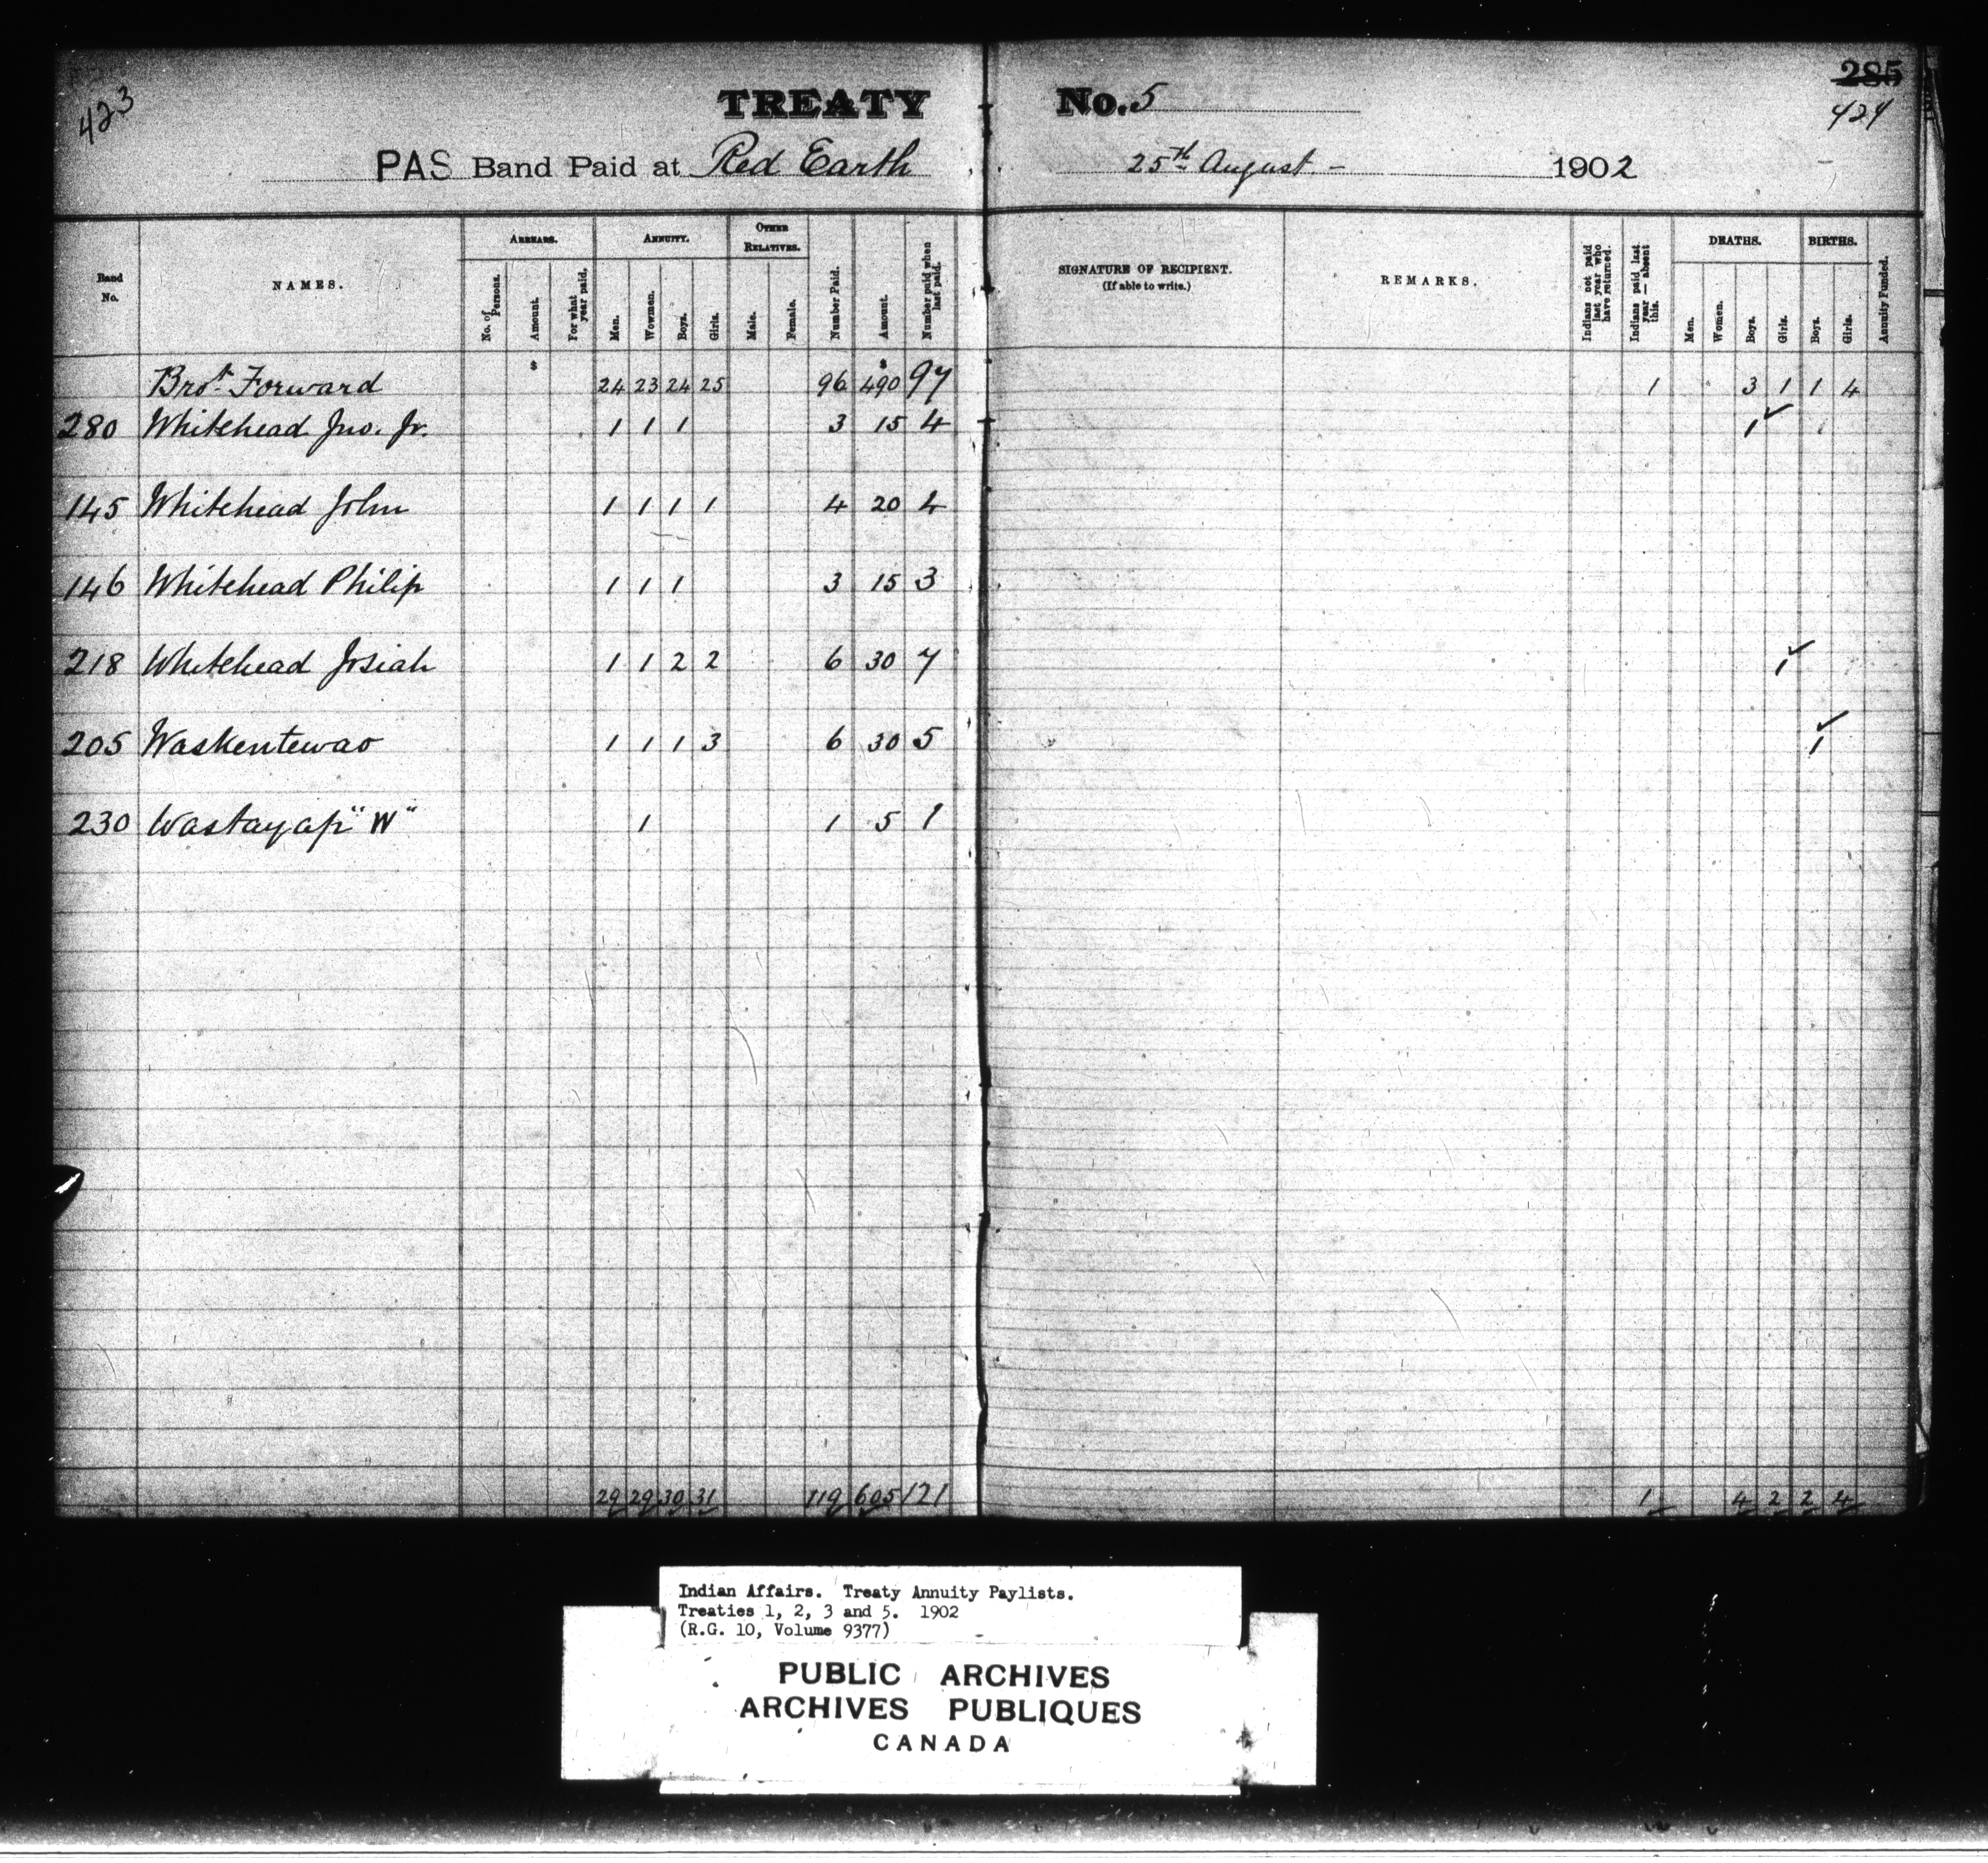 423
TREATY No. 5
285
424
PAS Band Paid at Red Earth 25th August - 1902
Band No. NAMES. ARREARS. No. of Persons. Amount. For what year paid. ANNUITY. Men. Wowmen. Boys. Girls. OTHER RELATIVES. Male. Female. Number Paid. Amount. Number paid when last paid. SIGNATURE OF RECIPIENT. (If able to write.) REMARKS. Indians not paid last year who have returned. Indians paid last year — absent this. DEATHS. Men. Women. Boys. Girls. BIRTHS. Boys. Girls. Annuity Funded.
$ $
Brot. Forward 24 23 24 25 96 490 97 1 3 1 1 4
280 Whitehead Jno. Jr. 1 1 1 3 15 4 1 ✓
145 Whitehead John 1 1 1 1 4 20 4
146 Whitehead Philip 1 1 1 3 15 3
218 Whitehead Josiah 1 1 2 2 6 30 7 1 ✓
205 Waskentewao 1 1 1 3 6 30 5 1 ✓
230 Wastayap "W" 1 1 5 1
29 29 30 31 119 605 121 1 4 2 2 4
Indian Affairs. Treaty Annuity Paylists.
Treaties 1, 2, 3 and 5. 1902
(R.G. 10, Volume 9377)
PUBLIC ARCHIVES
ARCHIVES PUBLIQUES
CANADA